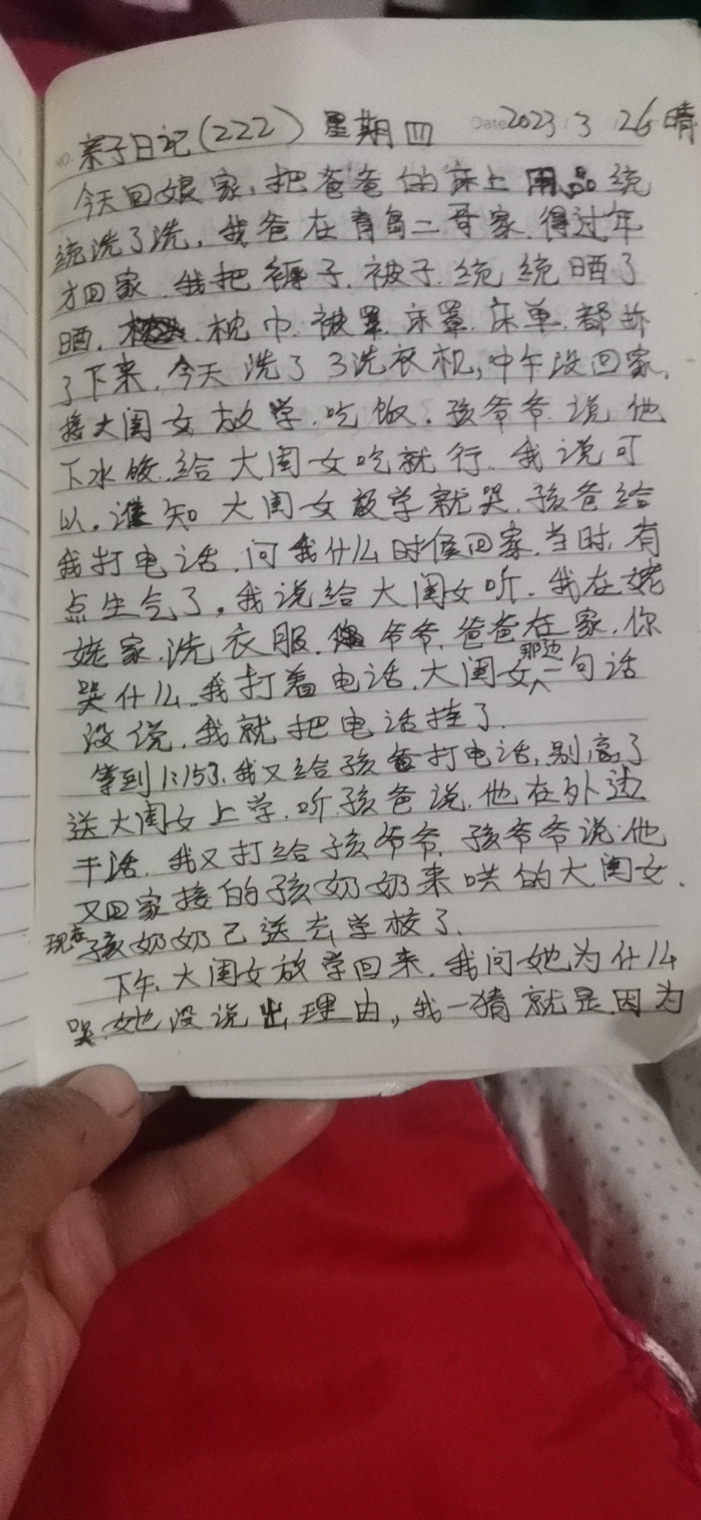 亲子日记(222) 星期四 Date 2023 3 26 晴
今天回娘家,把爸爸的床上用品统
统洗了洗,我爸在青岛二哥家.得过年
才回家.我把褥子.被子.统统晒了
晒.枕巾.被罩.床罩.床单.都拆
了下来.今天洗了3洗衣机,中午没回家.
接大闺女放学.吃饭.孩爷爷.说他
下水饺.给大闺女吃就行.我说可
以.谁知大闺女放学就哭.孩爸给
我打电话.问我什么时侯回家.当时,有
点生气了,我说给大闺女听.我在姥
姥家.洗衣服.爷爷.爸爸在家.你
哭什么.我打着电话.大闺女那边一句话
没说.我就把电话挂了.
等到1:15了.我又给孩爸打电话,别高了
送大闺女上学.听孩爸说.他在外边
干活.我又打给孩爷爷.孩爷爷说.他
又回家接的孩奶奶来哄的大闺女.
现在孩奶奶已送去学校了.
下午.大闺女放学回来.我问她为什么
哭.她没说出理由,,我一猜就是.因为